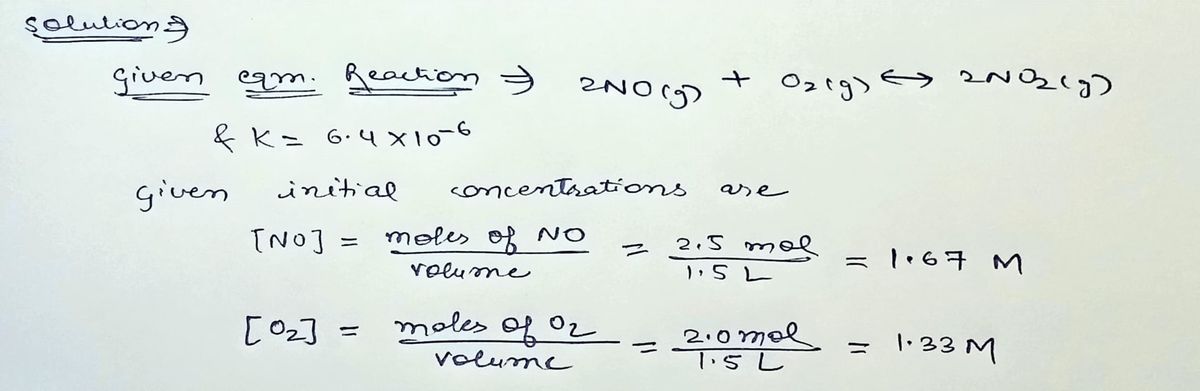 Solution ⇒
Given eqm. Reaction ⇒ 2NO(g) + O2(g) ↔ 2NO2(g)
& K = 6.4 × 10-6
given initial concentrations are
[NO] = moles of NO / volume = 2.5 mol / 1.5 L = 1.67 M
[O2] = moles of O2 / volume = 2.0 mol / 1.5 L = 1.33 M